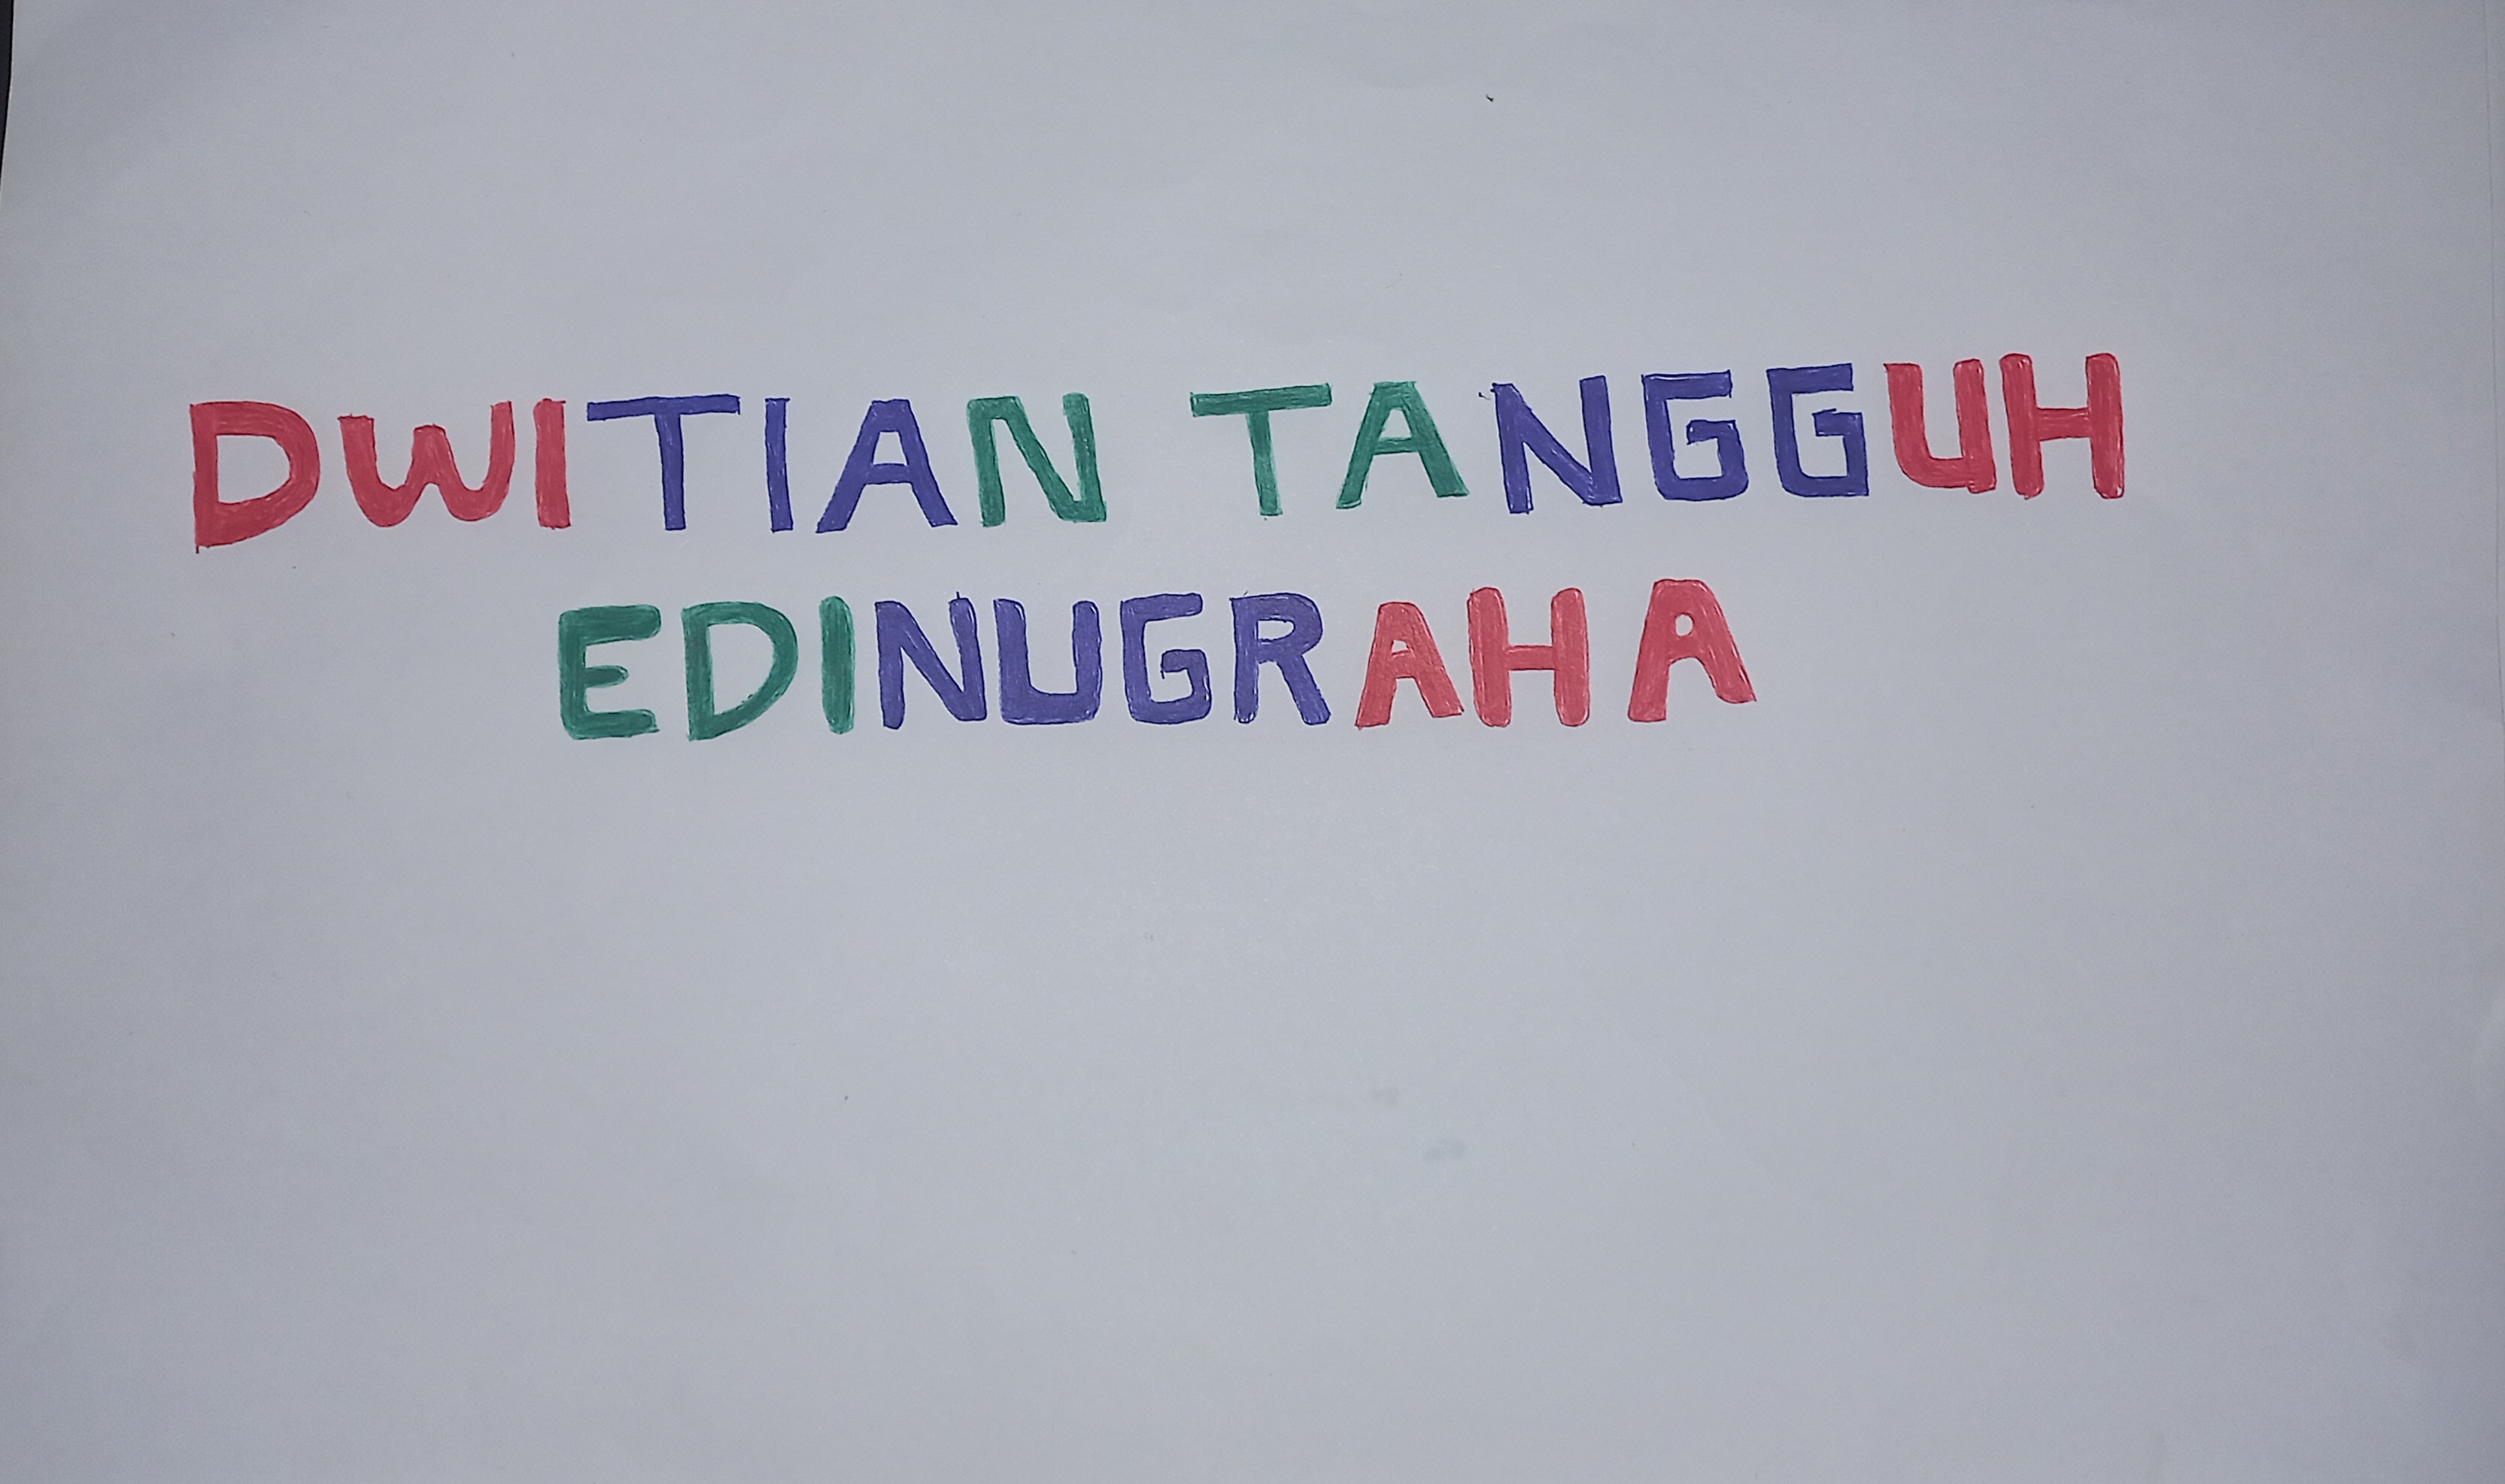 DWITIAN TANGGUH
EDINUGRAHA